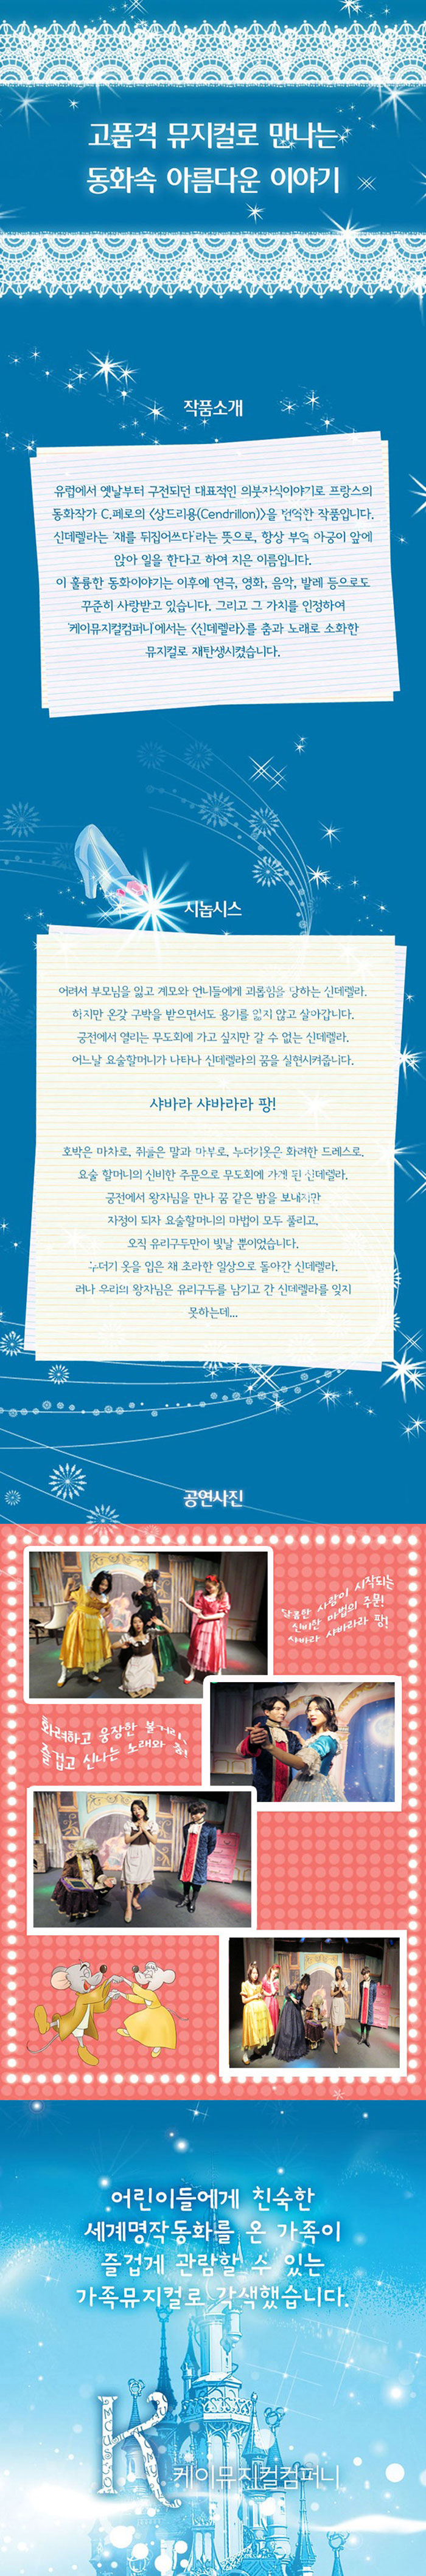 고품격 뮤지컬로 만나는
동화속 아름다운 이야기
작품소개
유럽에서 옛날부터 구전되던 대표적인 의붓자식이야기로 프랑스의
동화작가 C.페로의 <상드리용(Cendrillon)>을 번역한 작품입니다.
신데렐라는 '재를 뒤집어쓰다'라는 뜻으로, 항상 부엌 아궁이 앞에
앉아 일을 한다고 하여 지은 이름입니다.
이 훌륭한 동화이야기는 이후에 연극, 영화, 음악, 발레 등으로도
꾸준히 사랑받고 있습니다. 그리고 그 가치를 인정하여
'케이뮤지컬컴퍼니'에서는 <신데렐라>를 춤과 노래로 소화한
뮤지컬로 재탄생시켰습니다.
시놉시스
어려서 부모님을 잃고 계모와 언니들에게 괴롭힘을 당하는 신데렐라.
하지만 온갖 구박을 받으면서도 용기를 잃지 않고 살아갑니다.
궁전에서 열리는 무도회에 가고 싶지만 갈 수 없는 신데렐라.
어느날 요술할머니가 나타나 신데렐라의 꿈을 실현시켜줍니다.
샤바라 샤바라라 팡!
호박은 마차로, 쥐들은 말과 마부로, 누더기옷은 화려한 드레스로.
요술 할머니의 신비한 주문으로 무도회에 가게 된 신데렐라.
궁전에서 왕자님을 만나 꿈 같은 밤을 보내지만
자정이 되자 요술할머니의 마법이 모두 풀리고,
오직 유리구두만이 빛날 뿐이었습니다.
누더기 옷을 입은 채 초라한 일상으로 돌아간 신데렐라.
러나 우리의 왕자님은 유리구두를 남기고 간 신데렐라를 잊지
못하는데...
공연사진
달콤한 사랑이 시작되는
신비한 마법의 주문!
샤바라 샤바라라 팡!
화려하고 웅장한 볼거리,
즐겁고 신나는 노래와 춤!
어린이들에게 친숙한
세계명작동화를 온 가족이
즐겁게 관람할 수 있는
가족뮤지컬로 각색했습니다.
K
케이뮤지컬컴퍼니